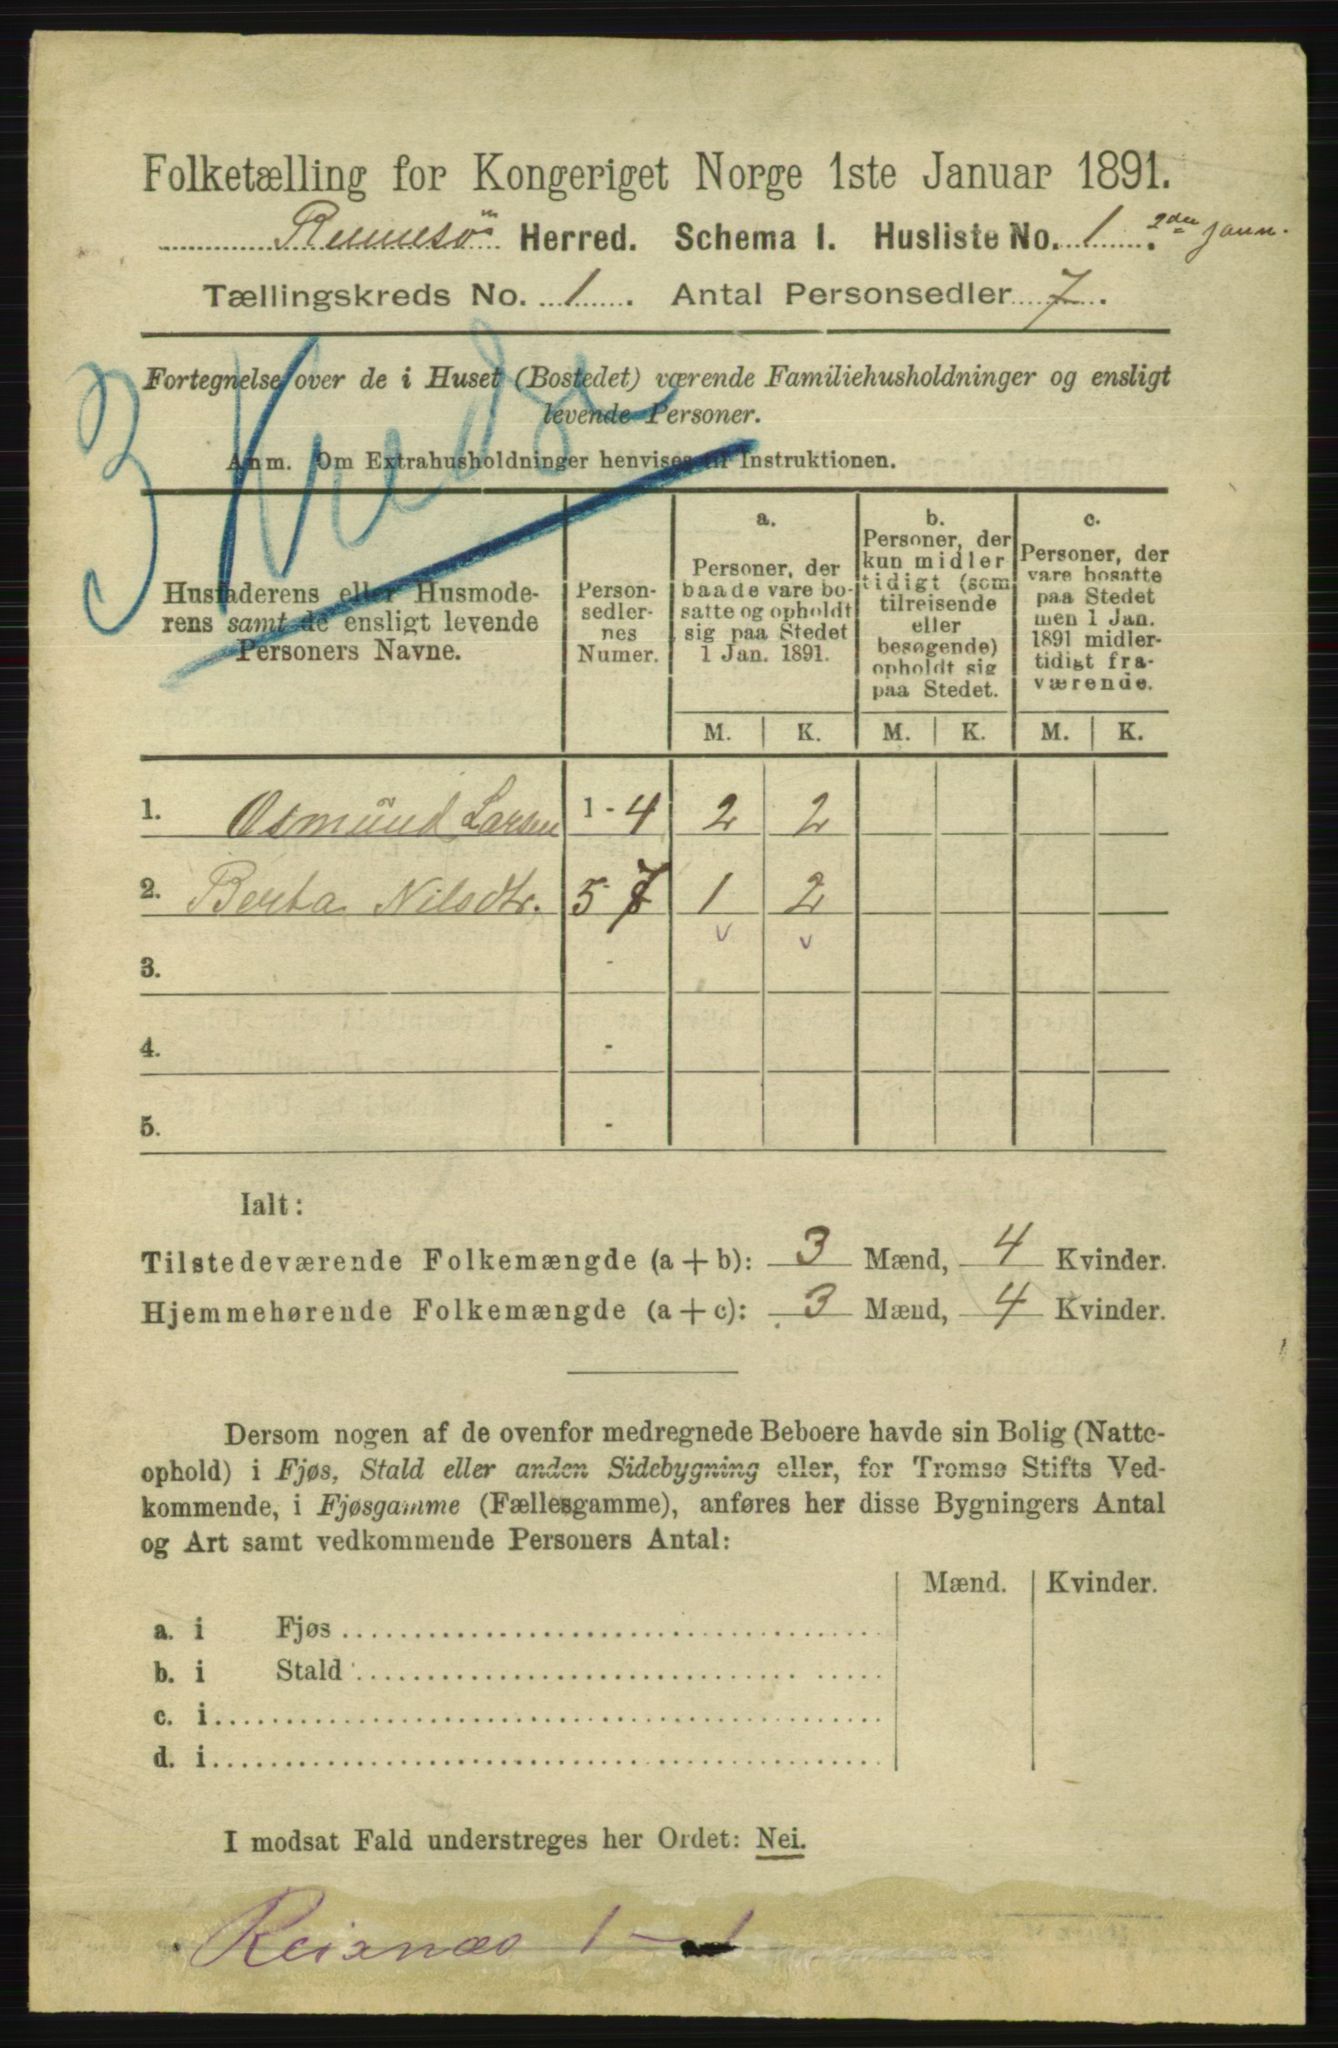 Folketælling for Kongeriget Norge 1ste Januar 1891.
Rennesø Herred. Schema I. Husliste No. 1. 2den Janu.
Tællingskreds No. 1. Antal Personsedler 7.
Fortegnelse over de i Huset (Bostedet) værende Familiehusholdninger og ensligt
levende Personer.
3 Kreds
Anm. Om Extrahusholdninger henvises til Instruktionen.
Husfaderens eller Husmode-
rens samt de ensligt levende
Personers Navne.
Person-
sedler-
nes
Numer.
a.
Personer, der
baade vare bo-
satte og opholdt
sig paa Stedet
1 Jan. 1891.
b.
Personer, der
kun midler
tidigt (som
tilreisende
eller
besøgende)
opholdt sig
paa Stedet.
c.
Personer, der
vare bosatte
paa Stedet
men 1 Jan.
1891 midler-
tidigt fra-
værende.
M. K. M. K. M. K.
1. Osmund Larsen 1 - 4 2 2
2. Berta Nilsdtr. 5 - 7 1 2
v v
3. -
4. -
5. -
Ialt:
Tilstedeværende Folkemængde (a + b): 3 Mænd, 4 Kvinder.
Hjemmehørende Folkemængde (a + c): 3 Mænd, 4 Kvinder.
Dersom nogen af de ovenfor medregnede Beboere havde sin Bolig (Natte-
ophold) i Fjøs, Stald eller anden Sidebygning eller, for Tromsø Stifts Ved-
kommende, i Fjøsgamme (Fællesgamme), anføres her disse Bygningers Antal
og Art samt vedkommende Personers Antal:
Mænd. Kvinder.
a. i Fjøs
b. i Stald
c. i
d. i
I modsat Fald understreges her Ordet: Nei.
1 - 1